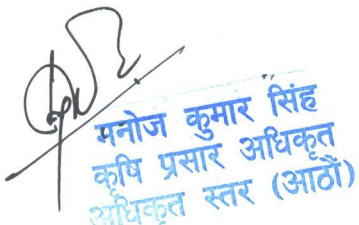 मनोज कुमार सिंह
कृषि प्रसार अधिकृत
अधिकृत स्तर (आठौं)